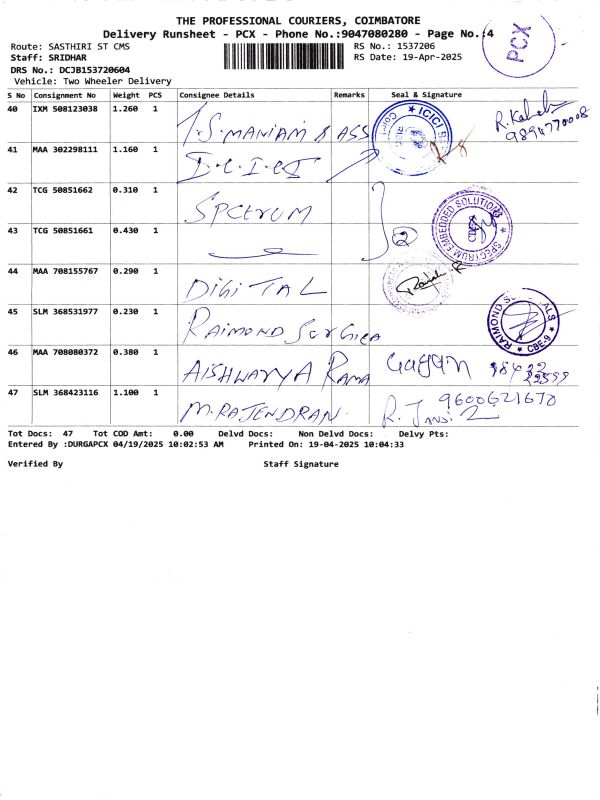 THE PROFESSIONAL COURIERS, COIMBATORE
Delivery Runsheet - PCX - Phone No.:9047080280 - Page No.:4
PCX
Route: SASTHIRI ST CMS
RS No.: 1537206
Staff: SRIDHAR
RS Date: 19-Apr-2025
DRS No.: DCJB153720604
Vehicle: Two Wheeler Delivery
S No Consignment No Weight PCS Consignee Details Remarks Seal & Signature
40 IXM 508123038 1.260 1 T.S. MANIAM & ASS
ICICI
9894770008
41 MAA 302298111 1.160 1 I.C.I.C.I
42 TCG 50851662 0.310 1 SPCTRUM
SPECTRUM EMBEDDED SOLUTIONS
43 TCG 50851661 0.430 1
2
44 MAA 708155767 0.290 1 DIGITAL
45 SLM 368531977 0.230 1 RAIMOND SURGICA
RAIMOND
CBE-9
46 MAA 708080372 0.380 1 AISHWARYA RAMA Gagan
47 SLM 368423116 1.100 1 M. RAJENDRAN. 9600621670
Tot Docs: 47 Tot COD Amt: 0.00 Delvd Docs: Non Delvd Docs: Delvy Pts:
Entered By :DURGAPCX 04/19/2025 10:02:53 AM Printed On: 19-04-2025 10:04:33
Verified By Staff Signature